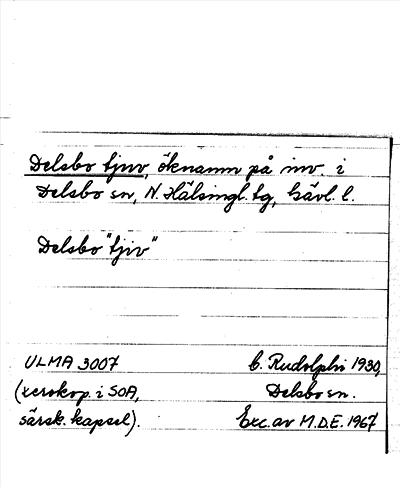 Delsbo tjuv, öknamn på inv. i
Delsbo sn, N. Hälsingl. tg, Gävl. l.
Delsbo "tjiv"
ULMA 3007
(xerokop. i SOA,
särsk. kapsel).
C. Rudolphi 1930,
Delsbo sn.
Exc. av M.D.E. 1967